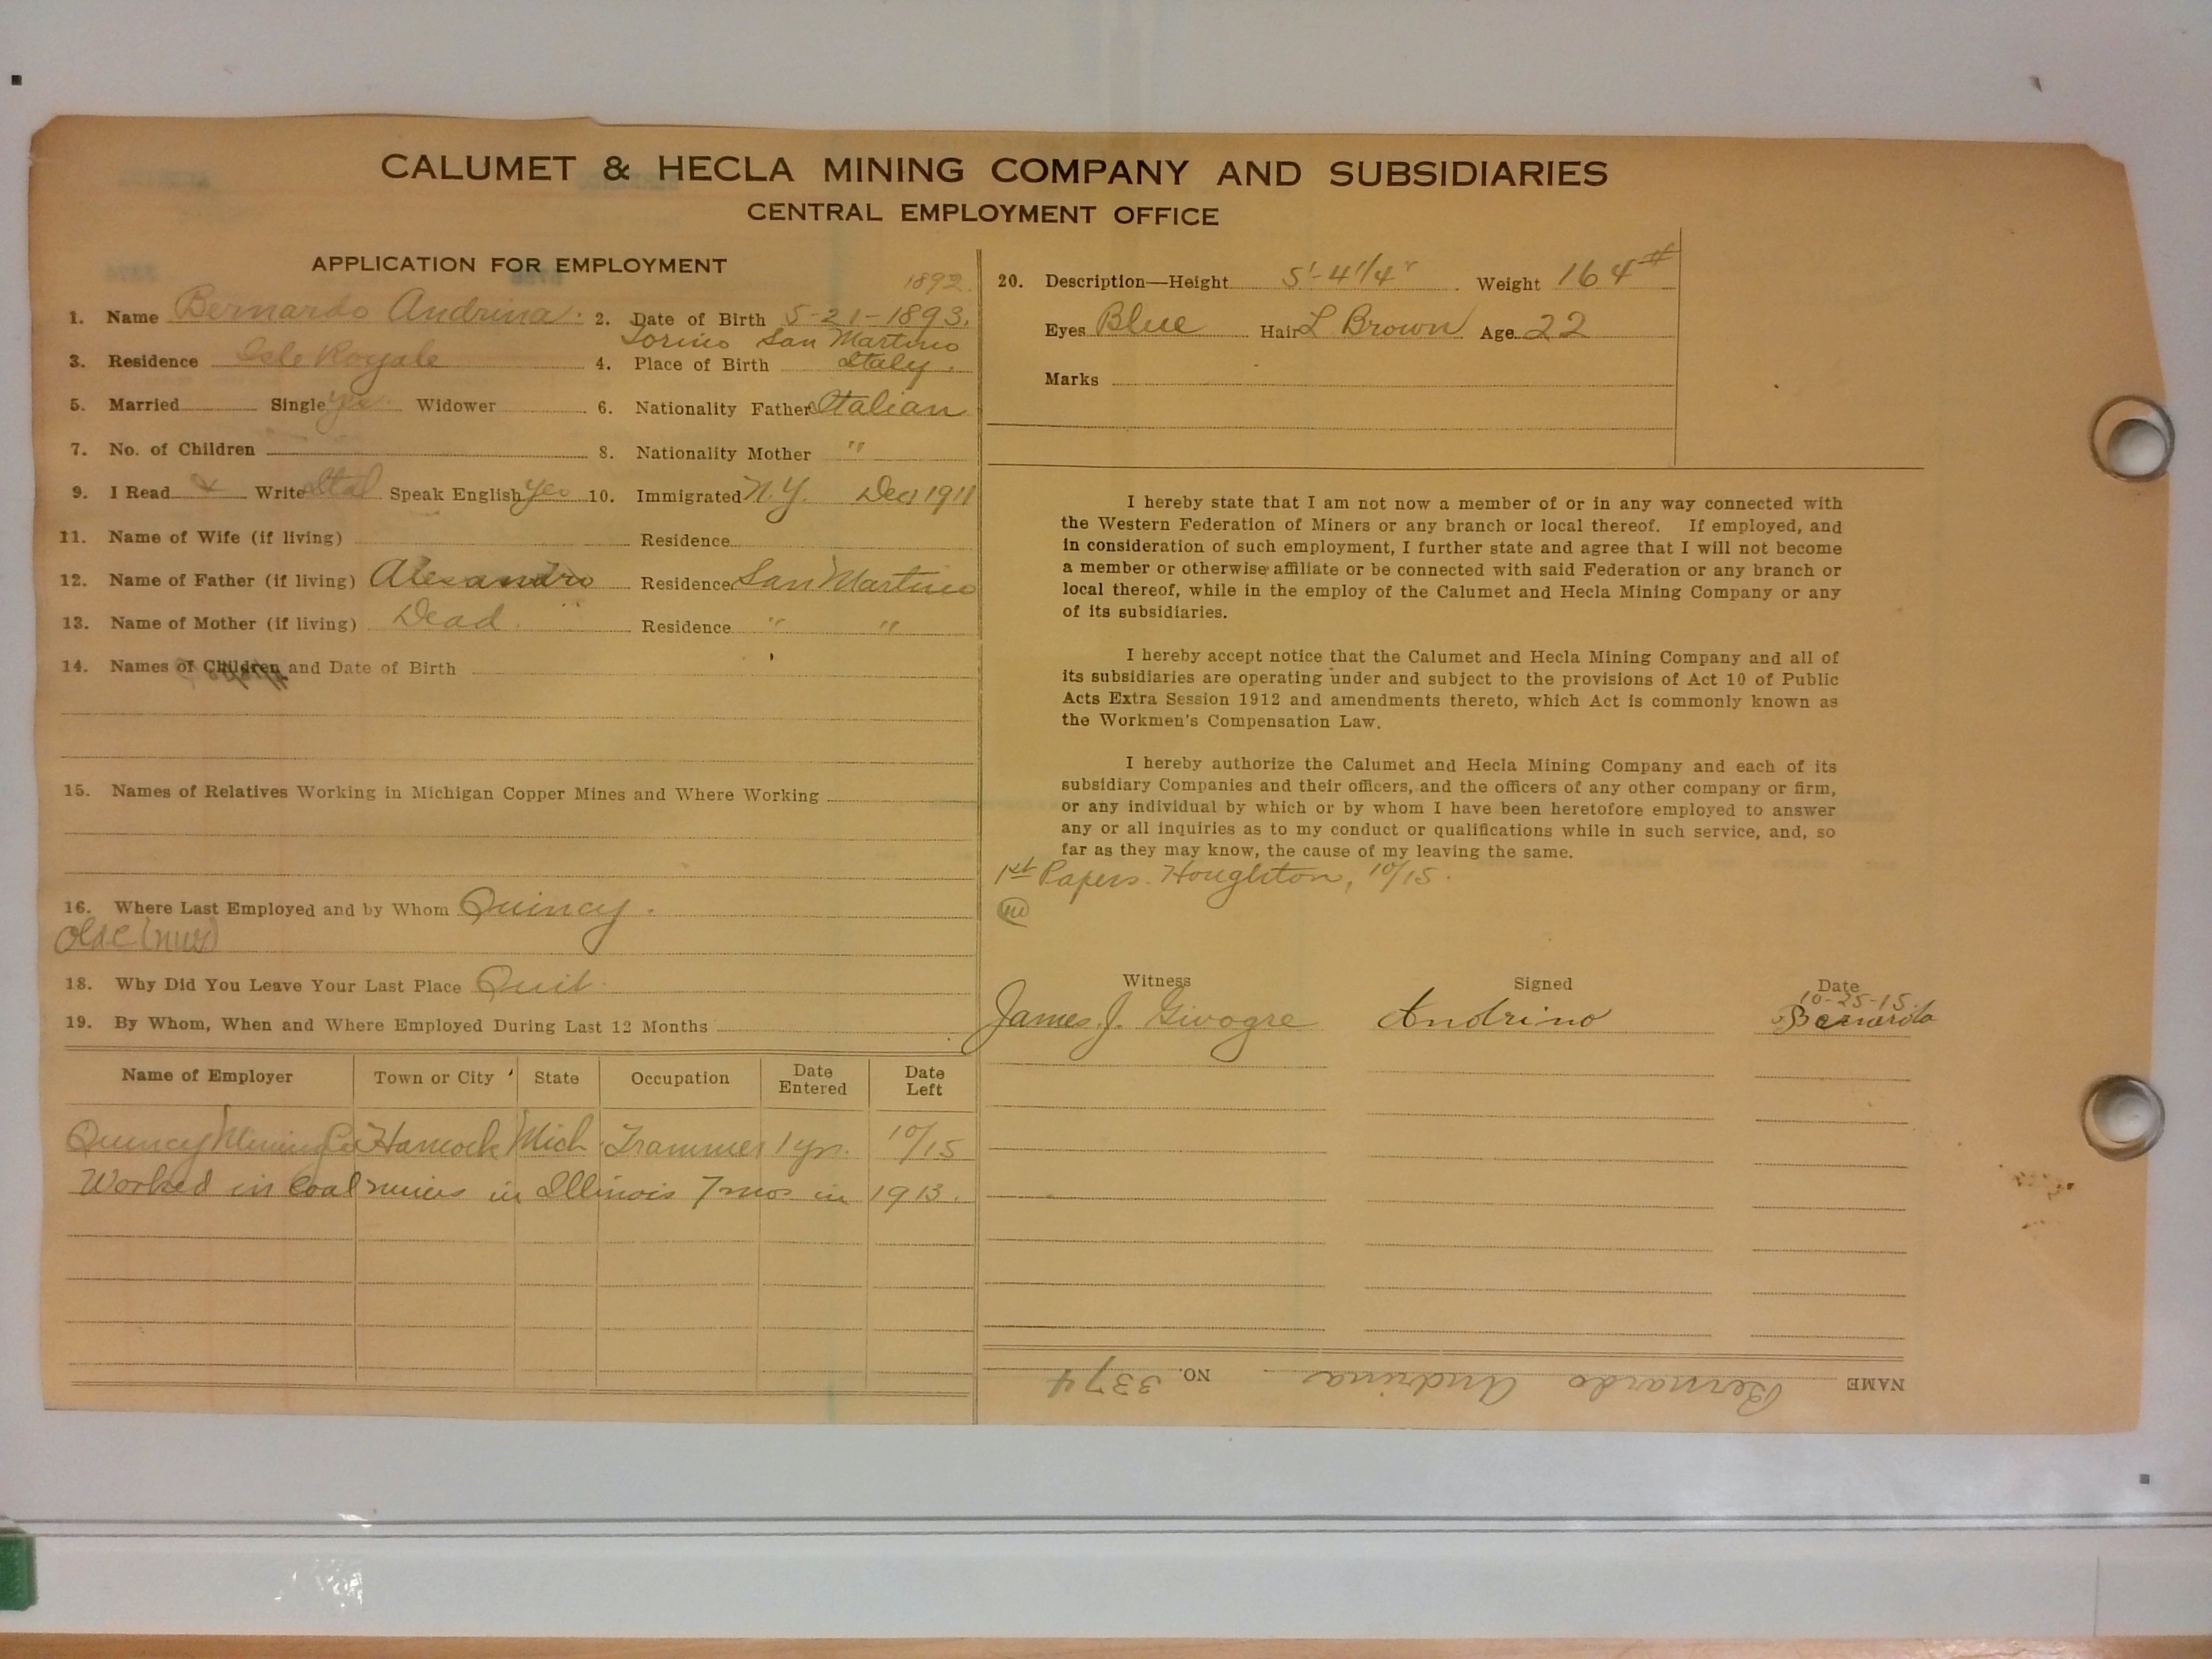 CALUMET & HECLA MINING COMPANY AND SUBSIDIARIES
CENTRAL EMPLOYMENT OFFICE
APPLICATION FOR EMPLOYMENT
1892.
1. Name Bernardo Andrina. 2. Date of Birth 5-21-1893.
Torino San Martino
3. Residence Isle Royale 4. Place of Birth Italy.
5. Married Single yes. Widower 6. Nationality Father Italian
7. No. of Children 8. Nationality Mother "
9. I Read & Write Ital Speak English yes 10. Immigrated N.Y. Dec, 1911
11. Name of Wife (if living) Residence
12. Name of Father (if living) Alesandro Residence San Martino
13. Name of Mother (if living) Dead. Residence " "
14. Names of Children and Date of Birth
15. Names of Relatives Working in Michigan Copper Mines and Where Working
16. Where Last Employed and by Whom Quincy.
18. Why Did You Leave Your Last Place Quit.
19. By Whom, When and Where Employed During Last 12 Months
Name of Employer Town or City State Occupation Date Entered Date Left
Quincy Mining Co Hancock Mich Trammer 1 yr. 10/15
Worked in coal mines in Illinois 7 mos in 1913.
20. Description—Height 5'-4 1/4" Weight 164#
Eyes Blue Hair L Brown Age 22
Marks
I hereby state that I am not now a member of or in any way connected with
the Western Federation of Miners or any branch or local thereof. If employed, and
in consideration of such employment, I further state and agree that I will not become
a member or otherwise affiliate or be connected with said Federation or any branch or
local thereof, while in the employ of the Calumet and Hecla Mining Company or any
of its subsidiaries.
I hereby accept notice that the Calumet and Hecla Mining Company and all of
its subsidiaries are operating under and subject to the provisions of Act 10 of Public
Acts Extra Session 1912 and amendments thereto, which Act is commonly known as
the Workmen's Compensation Law.
I hereby authorize the Calumet and Hecla Mining Company and each of its
subsidiary Companies and their officers, and the officers of any other company or firm,
or any individual by which or by whom I have been heretofore employed to answer
any or all inquiries as to my conduct or qualifications while in such service, and, so
far as they may know, the cause of my leaving the same.
1st Papers. Houghton, 10/15.
Witness Signed Date
10-25-15.
James J. Givogre Andrino Bernardo
NAME Bernardo Andrina NO. 3374